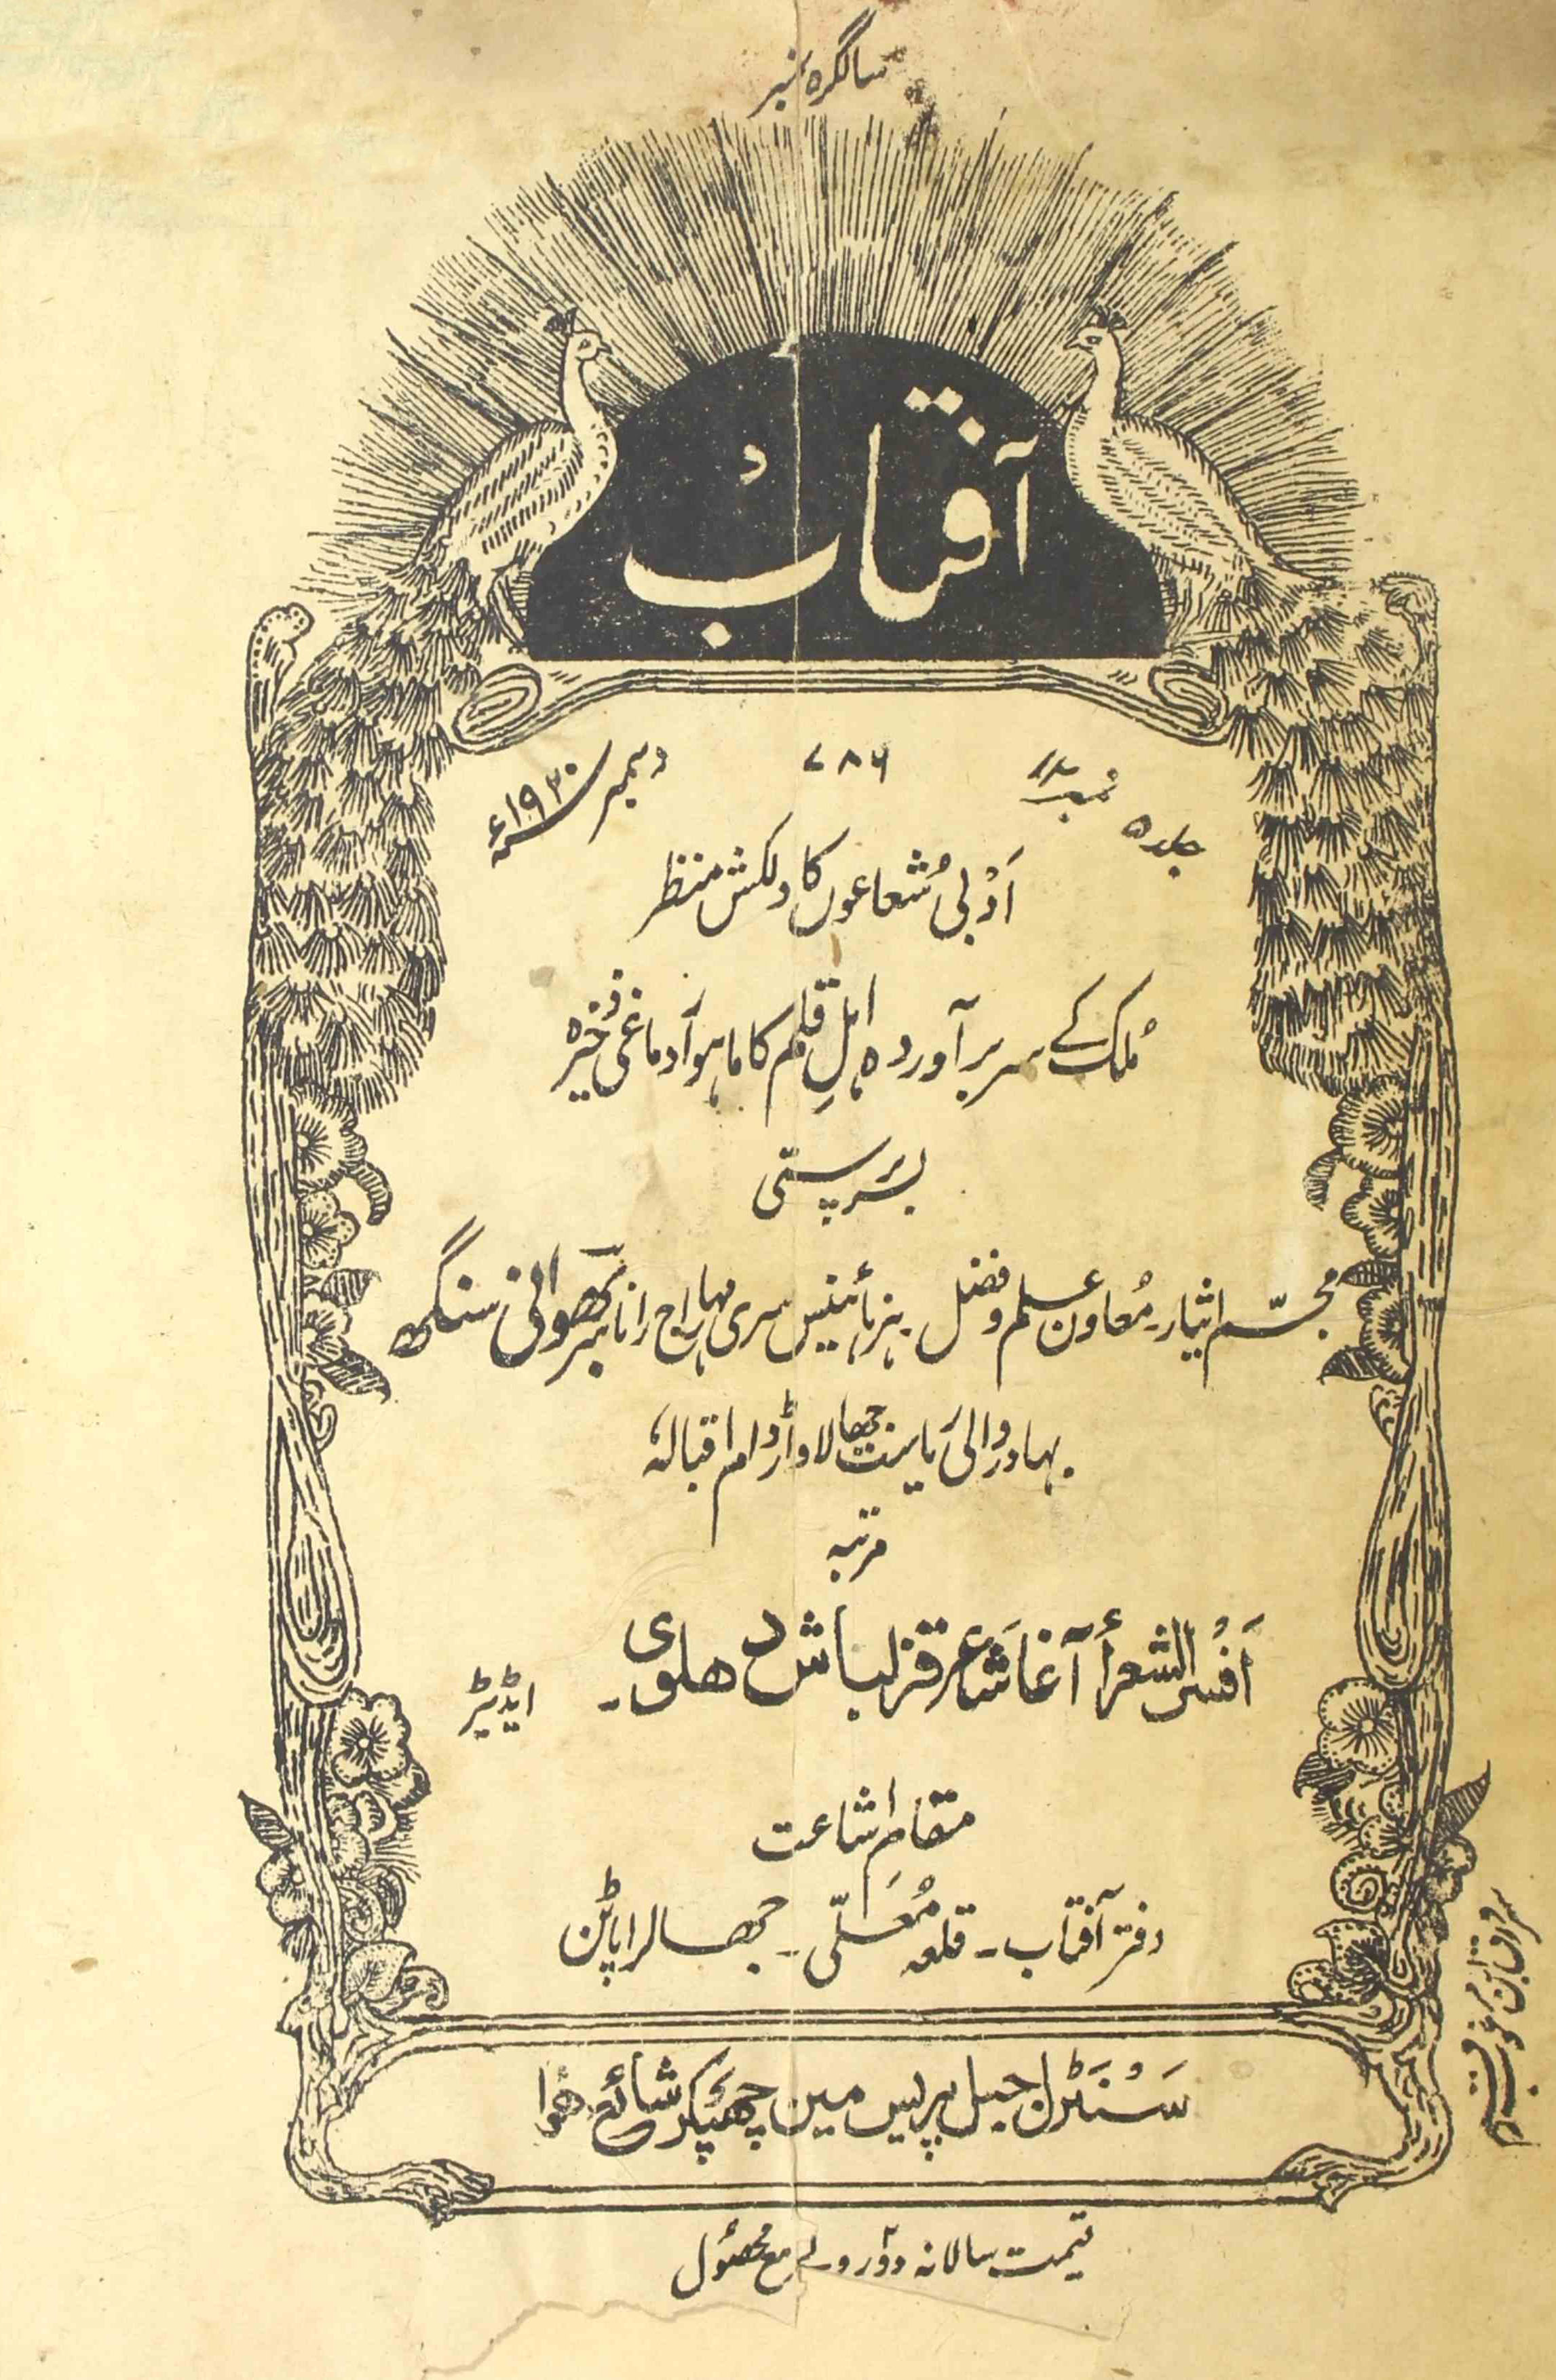 سالگرہ نمبر
آفتاب
جلد ۵ نمبر ۷۸۶ دسمبر ۱۹۳۰ء
اَدبی شُعاعوں کا دلکش منظر
مُلک کے سربرآوردہ اہلِ قلم کا ماہوار دماغی ذخیرہ
بسرپرستی
مجسّم ایثار۔ مُعاون علم وفضل ہزہائنیس سری مہاراج رانا سر بھوانی سنگھ
بہادر والیٔ ریاست جھالاواڑ دام اقبالہٗ
مرتبہ
اَفسُر الشعرأ آغا شاعر قزلباش دھلوی۔ ایڈیٹر
مقامِ اشاعت
دفتر آفتاب۔ قلعہ مُعلّی۔ جھالراپاٹن
سَنٹرل جیل پریس میں چھپکر شائع ھُوا
قیمت سالانہ دو روپے مع محصُول